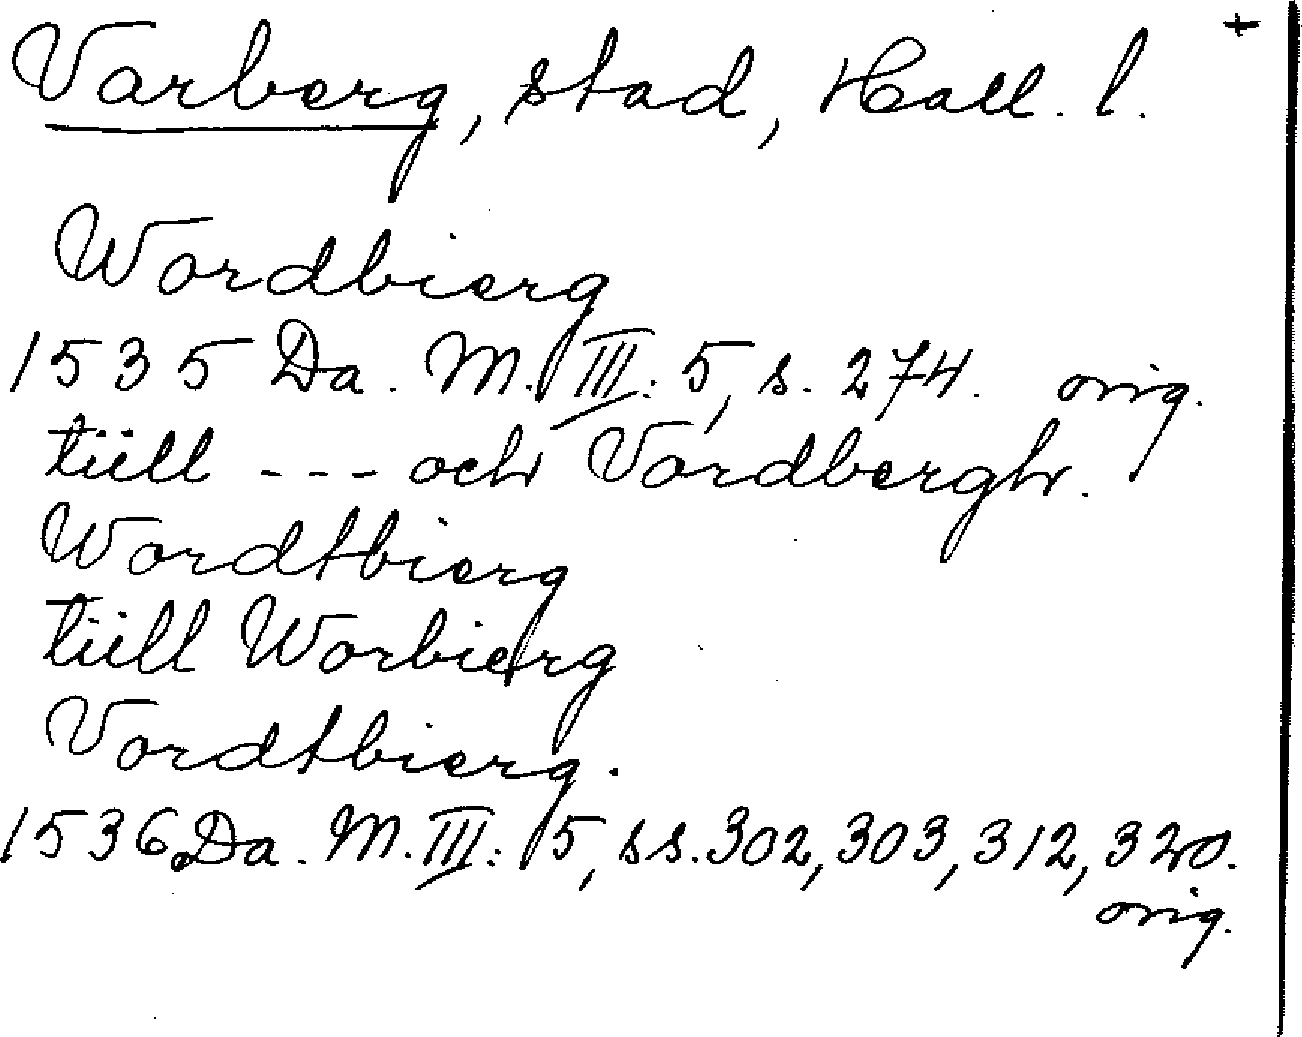 Varberg, stad, Hall. l. +
Wordbierg
1535 Da. M. III: 5, s. 274. orig.
tiill --- och Vordbergh.
Wordtbierg
tiill Worbierg
Vordtbierg.
1536 Da. M. III: 5, ss. 302, 303, 312, 320.
orig.